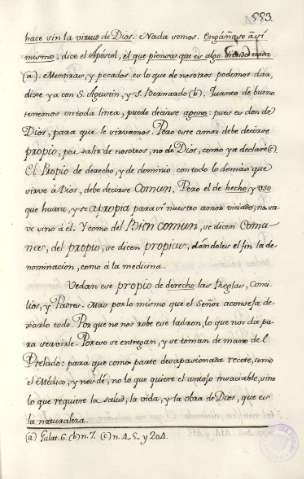 553.
hace vin la virtud de Dios. Nada somos. Engáñase à sí
mismo, dice el Apóstol, el que piensa que es algo
(a). Mentiras, y pecados es lo que de nosotros podemos dár,
diré ya con S. Agustin, y S. Bernardo (b). Quanto de bueno
tenemos en toda linea, puede decirse ageno: pues es don de
Dios, para que le sirvamos. Pero este amor debe decirse
propio, pues sale de nosotros, no de Dios, como ya declaré (c).
El Propio de derecho, y de dominio con todo lo demás que
sirve à Dios, debe decirse Comun. Pero el de hecho, y uso
que hurta, y se apropia para sí nuestro amor
uno à él. Y como del Bien comun, se dicen Comu-
nes, del propio, se dicen propios, dandoles el fin la de-
nominacion, como à la medicina.
Vedan este propio de derecho las Reglas, Conci-
lios, y Padres. Mas por lo mismo que el Señor aconseja de-
xarlo todo. Por que no nos robe este ladron, lo que nos dá pa-
ra servirle. Por eso se entregan, y se toman de mano del
Prelado: para que como parte desapasionada recete, como
el Médico, y nos dé, no lo que quiere el antojo insaciable, sino
lo que requiere la salud, la vida, y la obra de Dios, que es
la naturaleza.
(a) Galat. 6. (b) n. 7. (c) n. 4. 5. y 204.